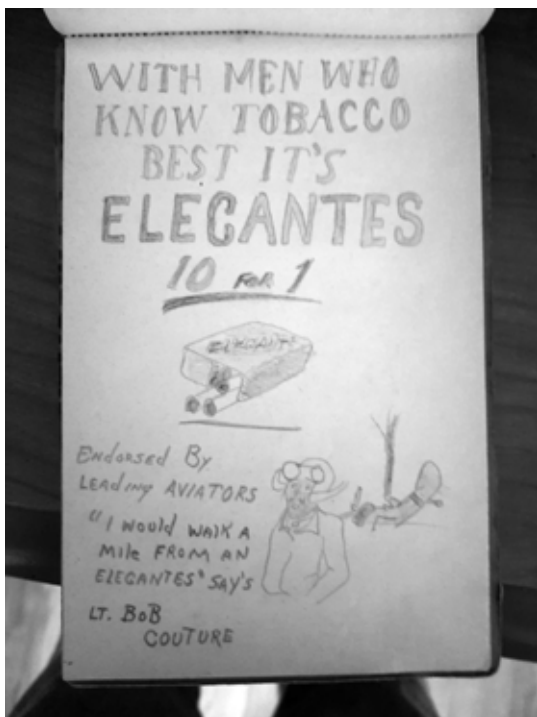 WITH MEN WHO
KNOW TOBACCO
BEST IT'S
ELEGANTES
10 FOR 1
ELEGANT
Endorsed By
LEADINg AVIATORS
"I WOULD WALK A
MILE FROM AN
ELEGANTES" SAY'S
LT. BOB
COUTURE